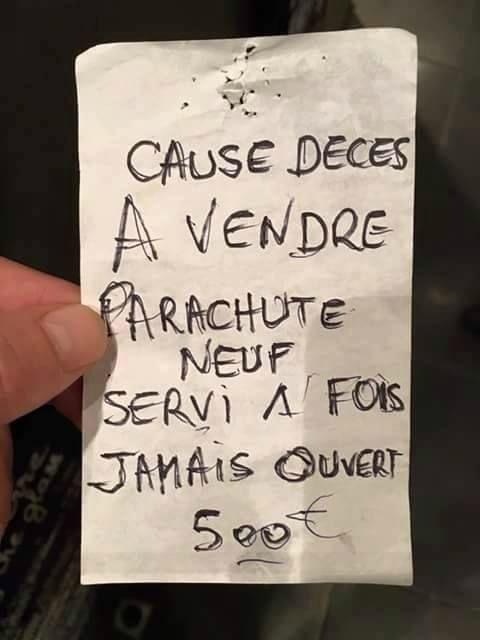 CAUSE DECES
A VENDRE
PARACHUTE
NEUF
SERVi 1 FOiS
JAMAiS OUVERT
500€